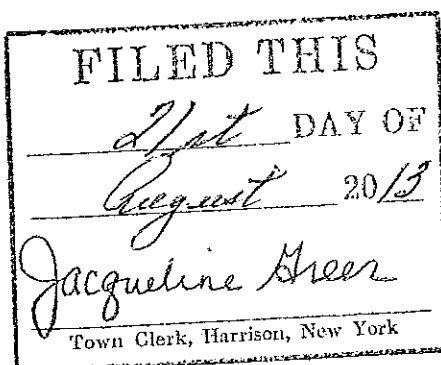 FILED THIS
21st DAY OF
August 2013
Jacqueline Greer
Town Clerk, Harrison, New York